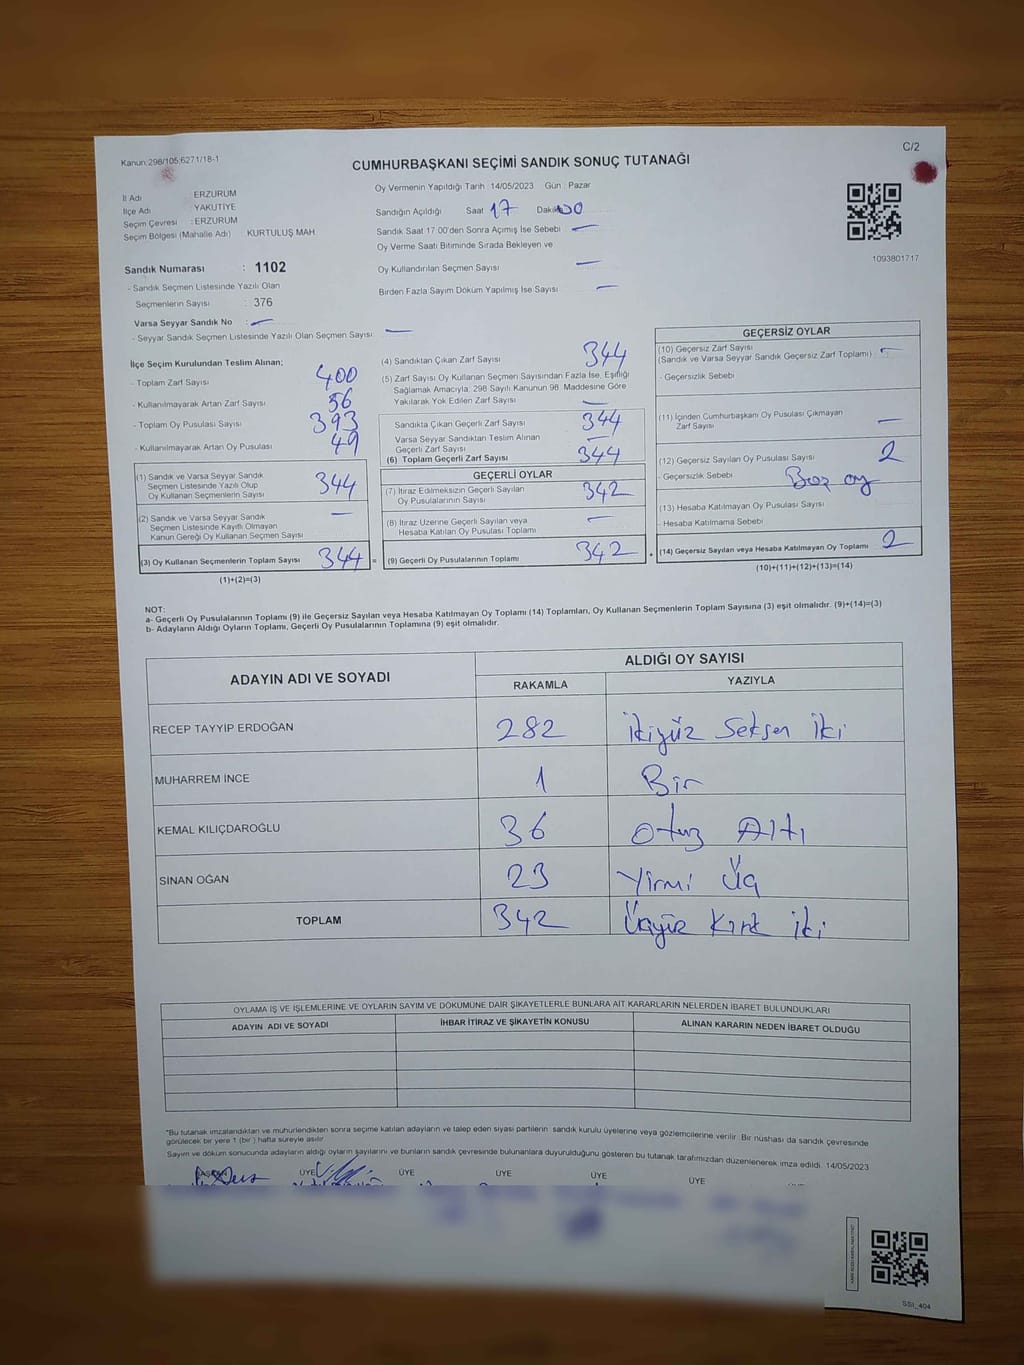 Kanun:298/105;6271/18-1
C/2
CUMHURBAŞKANI SEÇİMİ SANDIK SONUÇ TUTANAĞI
İl Adı : ERZURUM
İlçe Adı : YAKUTİYE
Seçim Çevresi : ERZURUM
Seçim Bölgesi (Mahalle Adı) : KURTULUŞ MAH.
Sandık Numarası : 1102
- Sandık Seçmen Listesinde Yazılı Olan
Seçmenlerin Sayısı : 376
Varsa Seyyar Sandık No : —
- Seyyar Sandık Seçmen Listesinde Yazılı Olan Seçmen Sayısı : —
Oy Vermenin Yapıldığı Tarih 14/05/2023 Gün : Pazar
Sandığın Açıldığı Saat 17 Dakika 00
Sandık Saat 17:00'den Sonra Açımış İse Sebebi —
Oy Verme Saati Bitiminde Sırada Bekleyen ve
Oy Kullandırılan Seçmen Sayısı —
Birden Fazla Sayım Döküm Yapılmış İse Sayısı —
1093801717
İlçe Seçim Kurulundan Teslim Alınan;
- Toplam Zarf Sayısı 400
- Kullanılmayarak Artan Zarf Sayısı 56
- Toplam Oy Pusulası Sayısı 393
- Kullanılmayarak Artan Oy Pusulası 49
(1) Sandık ve Varsa Seyyar Sandık
Seçmen Listesinde Yazılı Olup
Oy Kullanan Seçmenlerin Sayısı 344
(2) Sandık ve Varsa Seyyar Sandık
Seçmen Listesinde Kayıtlı Olmayan
Kanun Gereği Oy Kullanan Seçmen Sayısı —
(3) Oy Kullanan Seçmenlerin Toplam Sayısı 344 =
(1)+(2)=(3)
(4) Sandıktan Çıkan Zarf Sayısı 344
(5) Zarf Sayısı Oy Kullanan Seçmen Sayısından Fazla İse, Eşitliği
Sağlamak Amacıyla; 298 Sayılı Kanunun 98. Maddesine Göre
Yakılarak Yok Edilen Zarf Sayısı —
Sandıkta Çıkan Geçerli Zarf Sayısı 344
Varsa Seyyar Sandıktan Teslim Alınan
Geçerli Zarf Sayısı —
(6) Toplam Geçerli Zarf Sayısı 344
GEÇERLİ OYLAR
(7) İtiraz Edilmeksizin Geçerli Sayılan
Oy Pusulalarının Sayısı 342
(8) İtiraz Üzerine Geçerli Sayılan veya
Hesaba Katılan Oy Pusulası Toplamı —
(9) Geçerli Oy Pusulalarının Toplamı 342 +
GEÇERSİZ OYLAR
(10) Geçersiz Zarf Sayısı
(Sandık ve Varsa Seyyar Sandık Geçersiz Zarf Toplamı) —
- Geçersizlik Sebebi
(11) İçinden Cumhurbaşkanı Oy Pusulası Çıkmayan
Zarf Sayısı —
(12) Geçersiz Sayılan Oy Pusulası Sayısı 2
- Geçersizlik Sebebi Boş oy
(13) Hesaba Katılmayan Oy Pusulası Sayısı
- Hesaba Katılmama Sebebi
(14) Geçersiz Sayılan veya Hesaba Katılmayan Oy Toplamı 2
(10)+(11)+(12)+(13)=(14)
NOT:
a- Geçerli Oy Pusulalarının Toplamı (9) ile Geçersiz Sayılan veya Hesaba Katılmayan Oy Toplamı (14) Toplamları, Oy Kullanan Seçmenlerin Toplam Sayısına (3) eşit olmalıdır. (9)+(14)=(3)
b- Adayların Aldığı Oyların Toplamı, Geçerli Oy Pusulalarının Toplamına (9) eşit olmalıdır.
ADAYIN ADI VE SOYADI ALDIĞI OY SAYISI
RAKAMLA YAZIYLA
RECEP TAYYİP ERDOĞAN 282 İkiyüz Seksen İki
MUHARREM İNCE 1 Bir
KEMAL KILIÇDAROĞLU 36 Otuz Altı
SİNAN OĞAN 23 Yirmi Üç
TOPLAM 342 Üçyüz Kırk İki
OYLAMA İŞ VE İŞLEMLERİNE VE OYLARIN SAYIM VE DÖKÜMÜNE DAİR ŞİKAYETLERLE BUNLARA AİT KARARLARIN NELERDEN İBARET BULUNDUKLARI
ADAYIN ADI VE SOYADI İHBAR İTİRAZ VE ŞİKAYETİN KONUSU ALINAN KARARIN NEDEN İBARET OLDUĞU
"Bu tutanak imzalandıktan ve mühürlendikten sonra seçime katılan adayların ve talep eden siyasi partilerin sandık kurulu üyelerine veya gözlemcilerine verilir. Bir nüshası da sandık çevresinde
görülecek bir yere 1 (bir) hafta süreyle asılır
Sayım ve döküm sonucunda adayların aldığı oyların sayılarını ve bunların sandık çevresinde bulunanlara duyurulduğunu gösteren bu tutanak tarafımızdan düzenlenerek imza edildi. 14/05/2023
BAŞKAN ÜYE ÜYE ÜYE ÜYE ÜYE
SSI_404